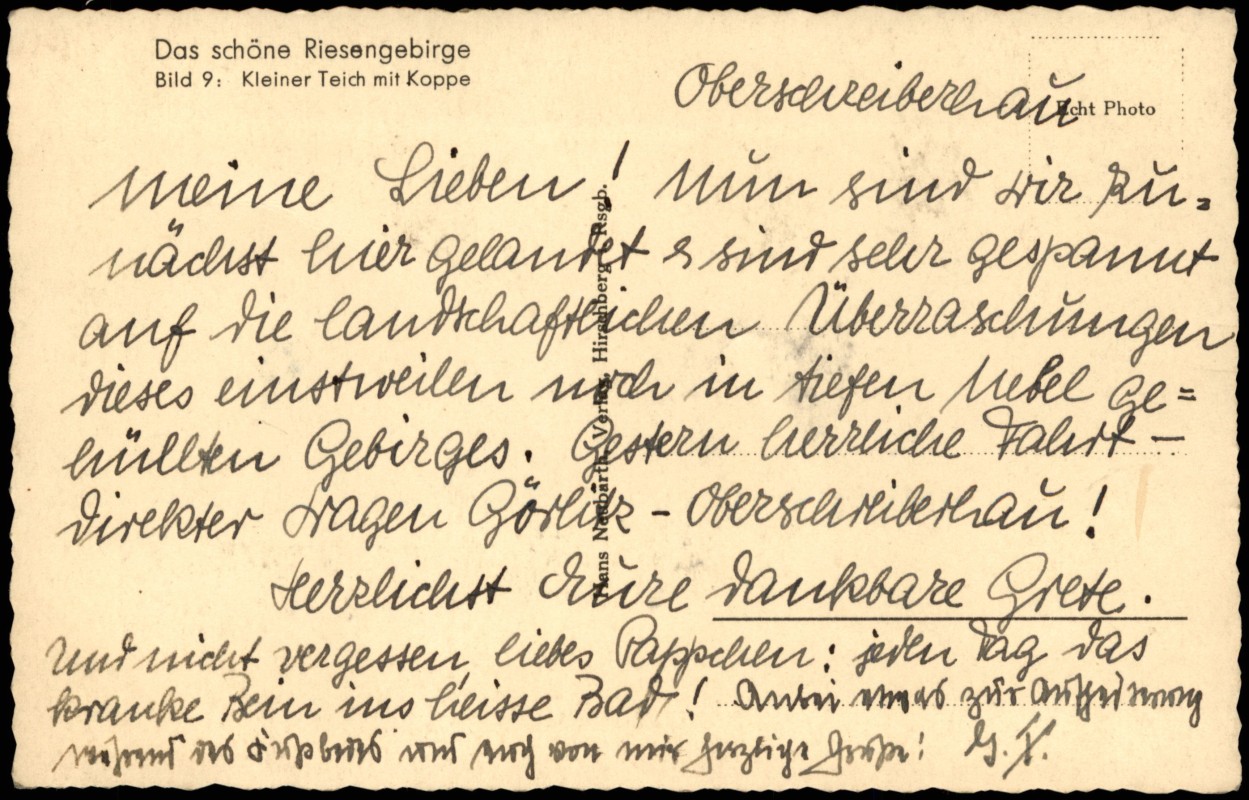 Das schöne Riesengebirge
Bild 9: Kleiner Teich mit Koppe
Echt Photo
Oberschreiberhau
Meine Lieben! Nun sind wir zu=
nächst hier gelandet & sind sehr gespannt
auf die landschaftlichen Überraschungen
dieses einstweilen noch in tiefen Nebel ge=
hüllten Gebirges. Gestern herrliche Fahrt –
direkter Wagen Görlitz – Oberschreiberhau!
Herzlichst Eure dankbare Grete.
Und nicht vergessen, liebes Pappchen: jeden Tag das
kranke Bein ins heisse Bad! Anbei etwas zur Aufheiterung
während des Fußbades und auch von mir herzliche Grüße!
Hans Neubarth, Verlag, Hirschberg i. Rsgb.